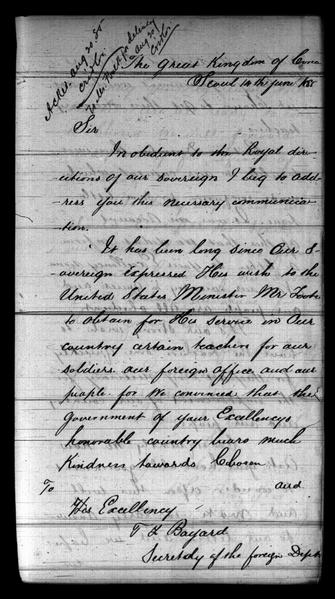 Ackd. Aug 20. 85
The Great Kingdom of Corea
Seoul 14th June 1885
Sir
In obedient to the Royal dir-
ections of our sovereign I beg to add-
ress you this necessary communica-
tion.
It has been long since Our S-
overeign expressed His wish to the
United States Minister Mr Foote
to obtain for His service in Our
country certain teachers for our
soldiers our foreign office and our
people for We convinced that the
government of your Excellencys
honorable country bears much
Kindness towards Chosen
and
To
His Excellency
T F Bayard
Secretdy of the foreign Dept.